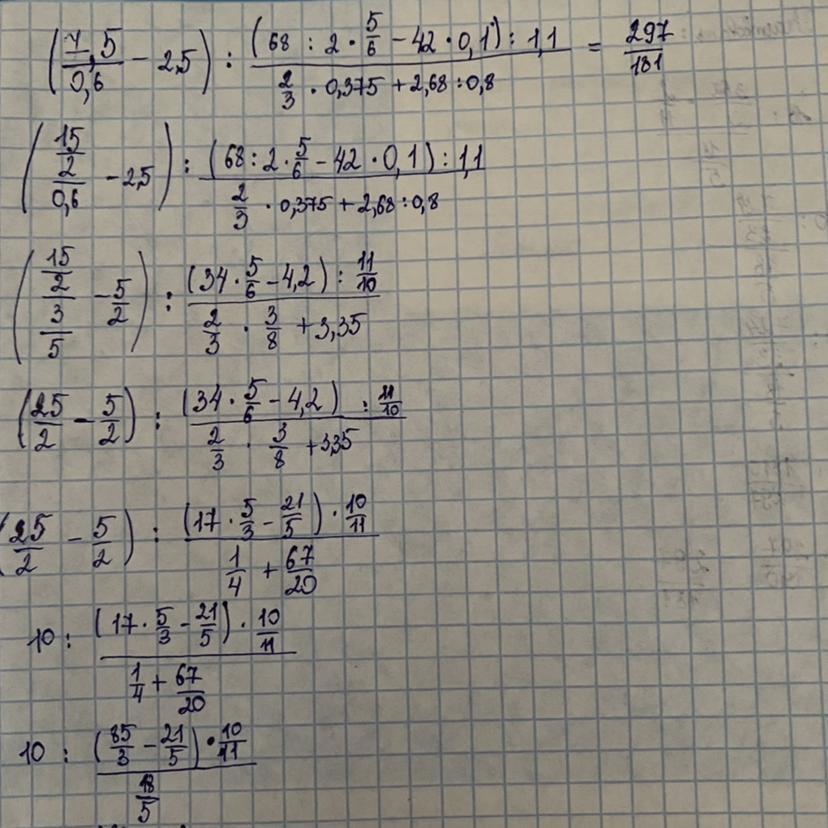 (7,5/0,6 − 2,5) : (68 : 2 · 5/6 − 42 · 0,1) : 1,1 / 2/3 · 0,375 + 2,68 : 0,8 = 297/181
(15/2/0,6 − 2,5) : (68 : 2 · 5/6 − 42 · 0,1) : 1,1 / 2/3 · 0,375 + 2,68 : 0,8
(15/2/3/5 − 5/2) : (34 · 5/6 − 4,2) : 11/10 / 2/3 · 3/8 + 3,35
(25/2 − 5/2) : (34 · 5/6 − 4,2) : 11/10 / 2/3 · 3/8 + 3,35
(25/2 − 5/2) : (17 · 5/3 − 21/5) · 10/11 / 1/4 + 67/20
10 : (17 · 5/3 − 21/5) · 10/11 / 1/4 + 67/20
10 : (85/3 − 21/5) · 10/11 / 18/5